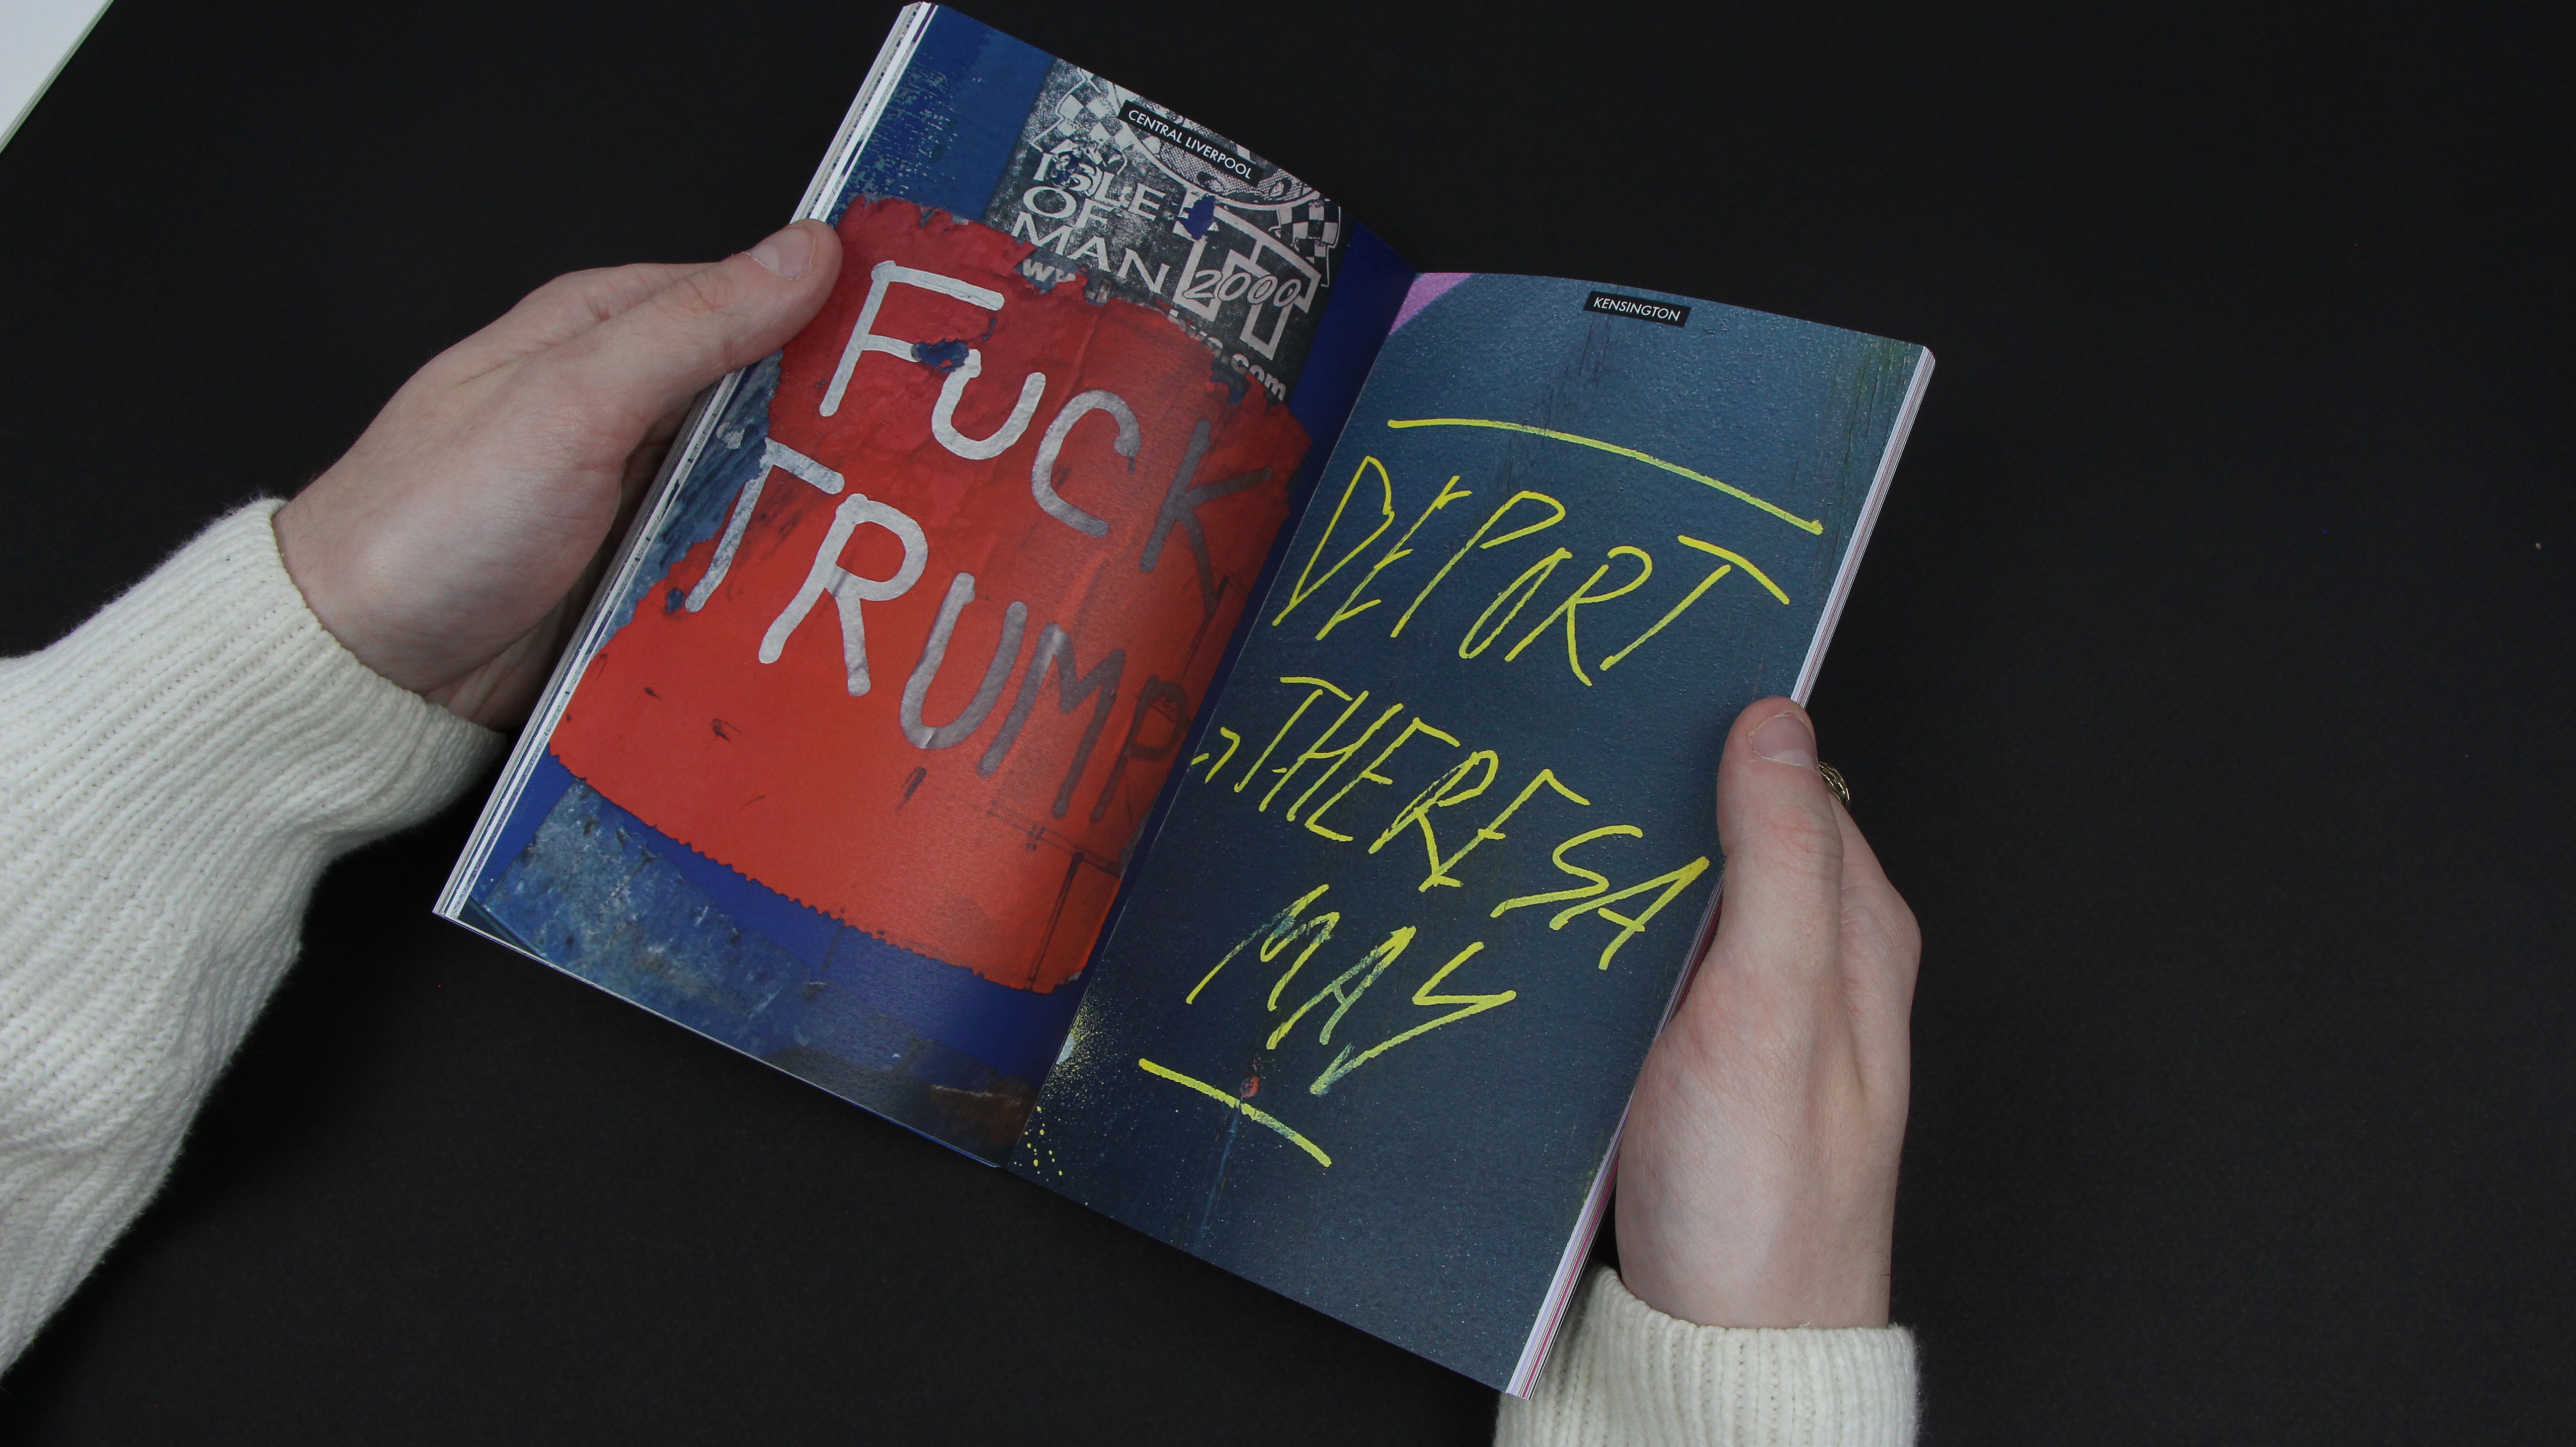 CENTRAL LIVERPOOL
ISLE
OF
MAN
2000
FUCK
TRUMP
KENSINGTON
DEPORT
THERESA
MAY